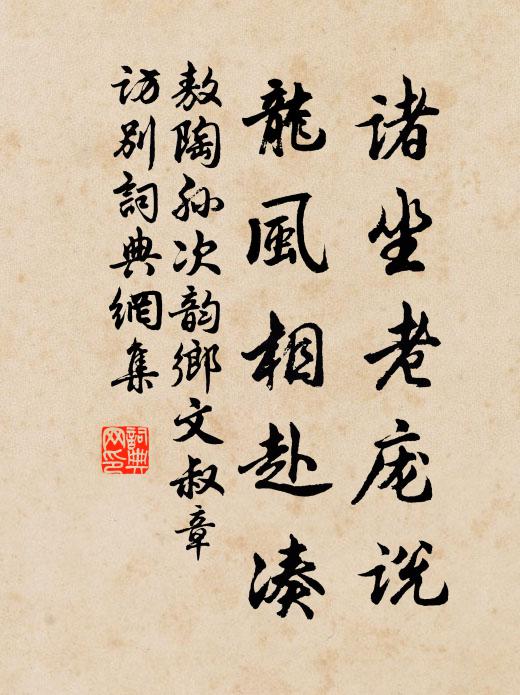 诸坐老庞说
龍風相赴湊
敖陶孙次韵鄉文叔章
访别詞典網集
詞典网印